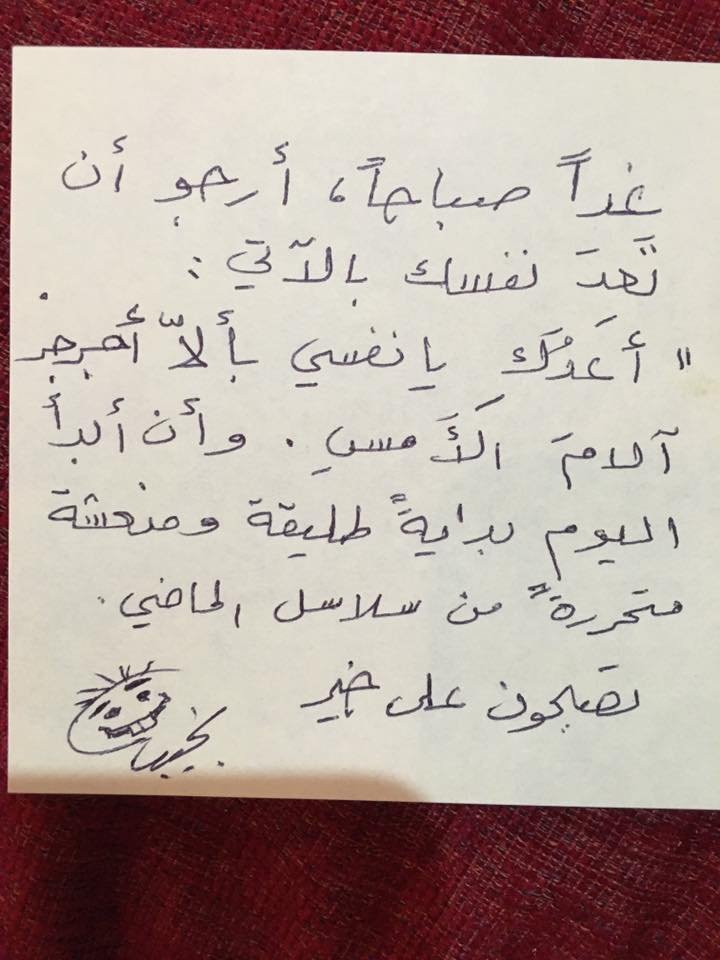 غداً صباحاً، أرجو أن
تَعدَ نفسك بالآتي :
" أعَدُكِ يا نفسي بألاّ أجرجر
آلامَ الأَمسِ . وأن أبدأ
اليوم بدايةً طليقة ومنعشة
متحررة" من سلاسل الماضي .
تصبحون على خير